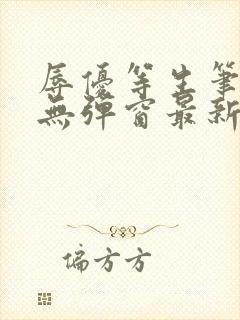 辱優等生筆
無彈窗最新
偏方方